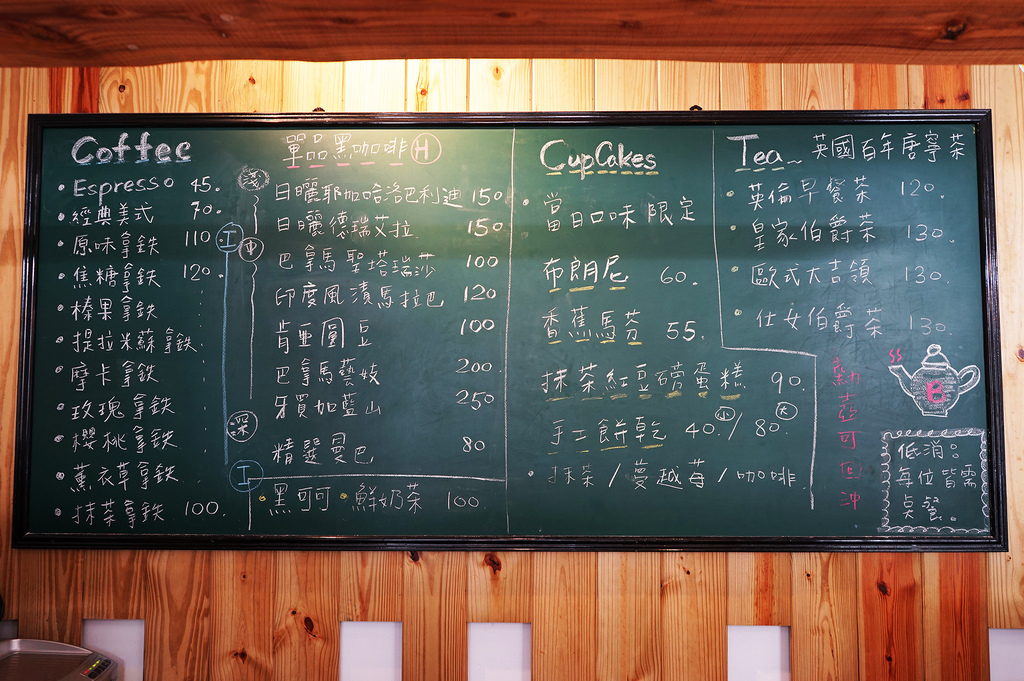 Coffee
Espresso 45.
經典美式 70.
原味拿鉄 110
焦糖拿鉄 120.
榛果拿鉄
提拉米蘇拿鉄
摩卡拿鉄
玫瑰拿鉄
櫻桃拿鉄
薰衣草拿鉄
抹茶拿鉄 100.
單品黑咖啡 H
淺
日曬耶加哈洛巴利迪 150
日曬德瑞艾拉 150
中
巴拿馬聖塔瑞莎 100
印度風漬馬拉巴 120
肯亞圓豆 100
巴拿馬藝妓 200
牙買加藍山 250
深
精選曼巴 80
黑可可 鮮奶茶 100
CupCakes
當日口味限定
布朗尼 60.
香蕉馬芬 55.
抹茶紅豆磅蛋糕 90.
手工餅乾 40.小/80.大
抹茶/蔓越莓/咖啡
Tea~ 英國百年唐寧茶
英倫早餐茶 120.
皇家伯爵茶 130.
歐式大吉領 130.
仕女伯爵茶 130.
熱壺可回沖
B
低消:
每位皆需
桌餐.